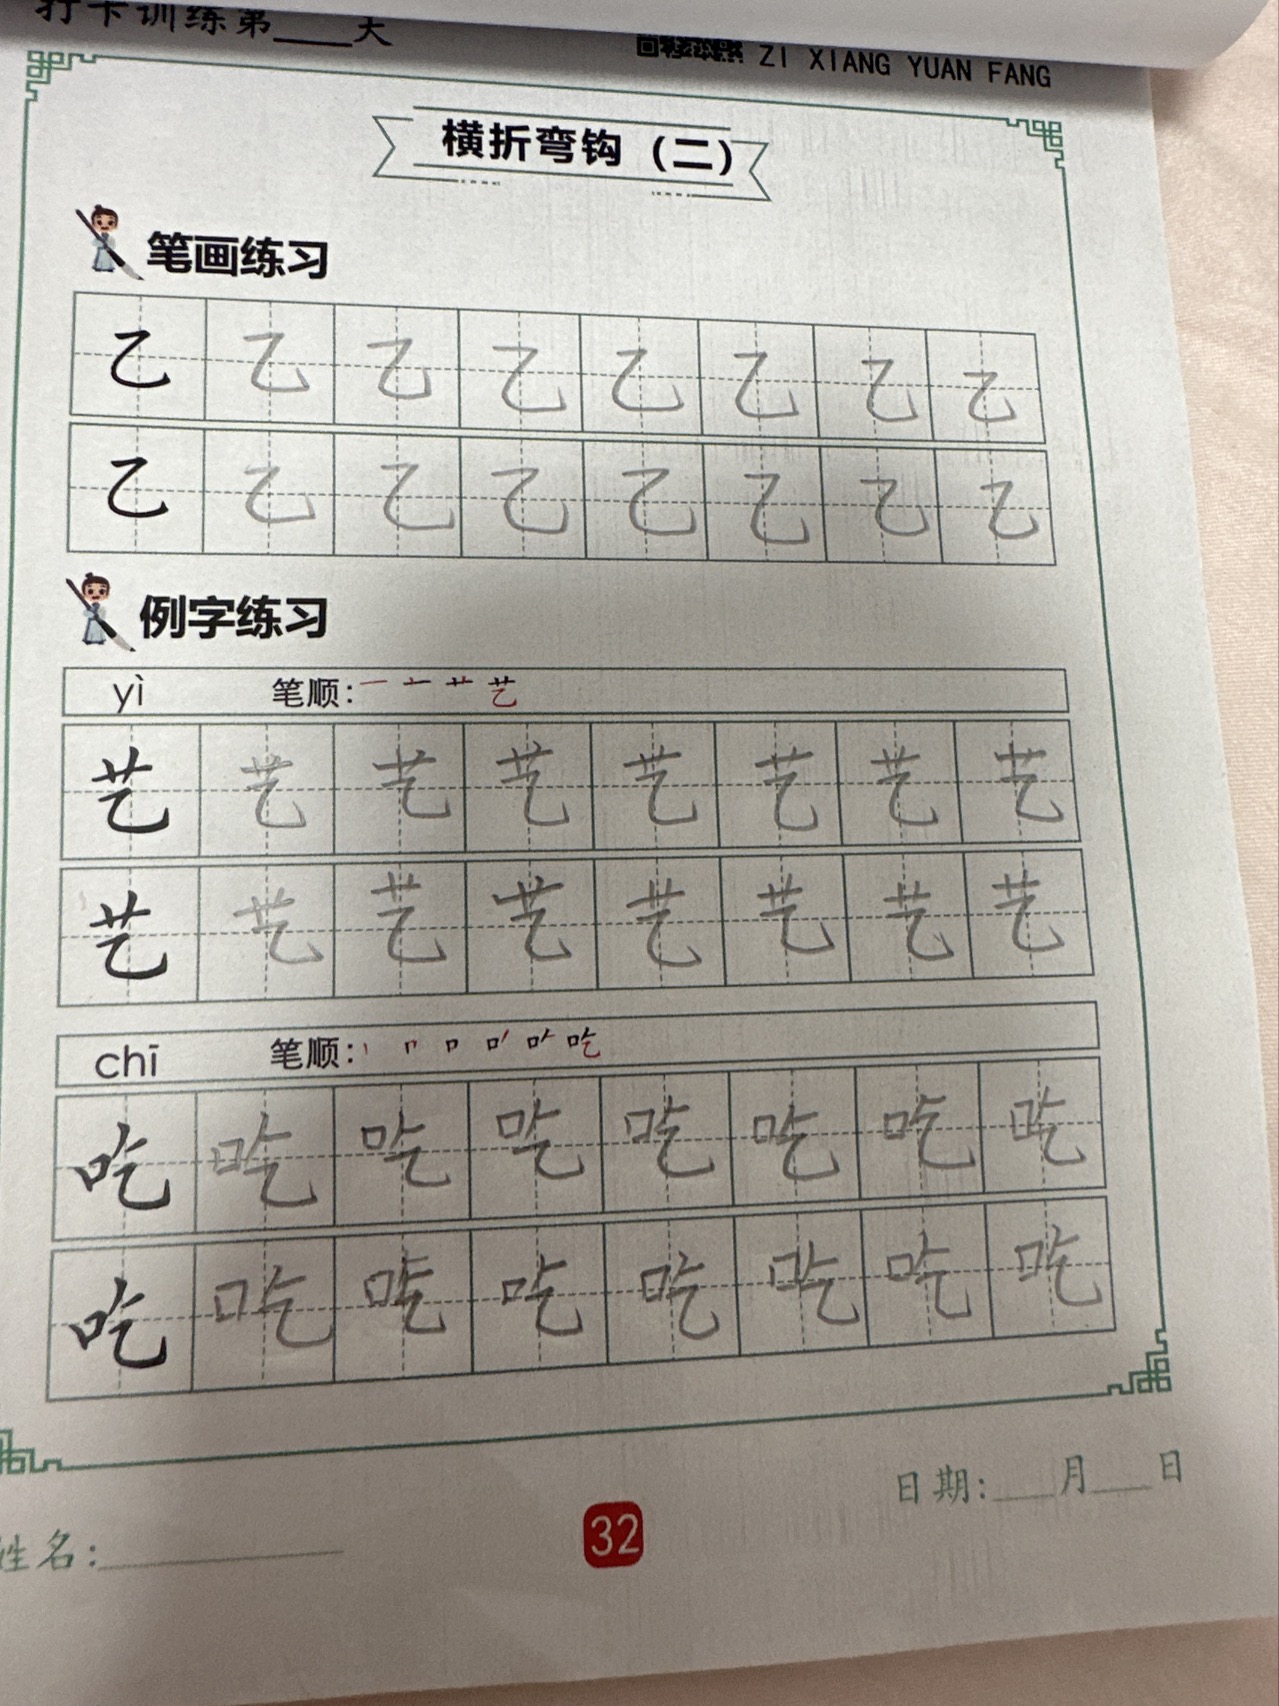 打卡训练第____天
ZI XIANG YUAN FANG
横折弯钩（二）
笔画练习
乙 乙 乙 乙 乙 乙 乙 乙
乙 乙 乙 乙 乙 乙 乙 乙
例字练习
yì 笔顺：一 艹 艺
艺 艺 艺 艺 艺 艺 艺 艺
艺 艺 艺 艺 艺 艺 艺 艺
chī 笔顺：丨 口 吃
吃 吃 吃 吃 吃 吃 吃 吃
吃 吃 吃 吃 吃 吃 吃 吃
日期：____月____日
姓名：____________
32